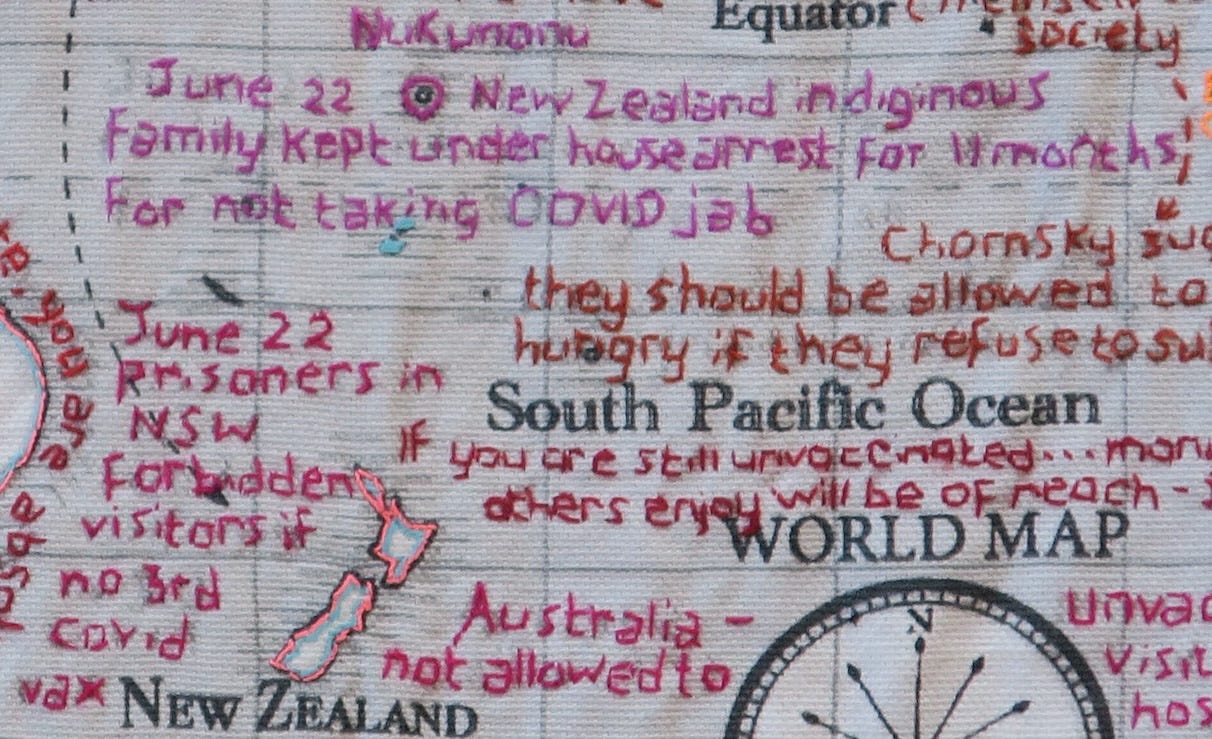 Equator
society
Nukunonu
June 22 New Zealand indiginous
Family kept under house arrest for 11 months
For not taking COVID jab
Chomsky
they should be allowed to
hungry if they refuse to
South Pacific Ocean
If you are still unvaccinated...
others enjoy will be of reach -
WORLD MAP
June 22
Prisoners in
NSW
Forbidden
visitors if
no 3rd
Covid
vax
NEW ZEALAND
Australia -
not allowed to
N
you are a